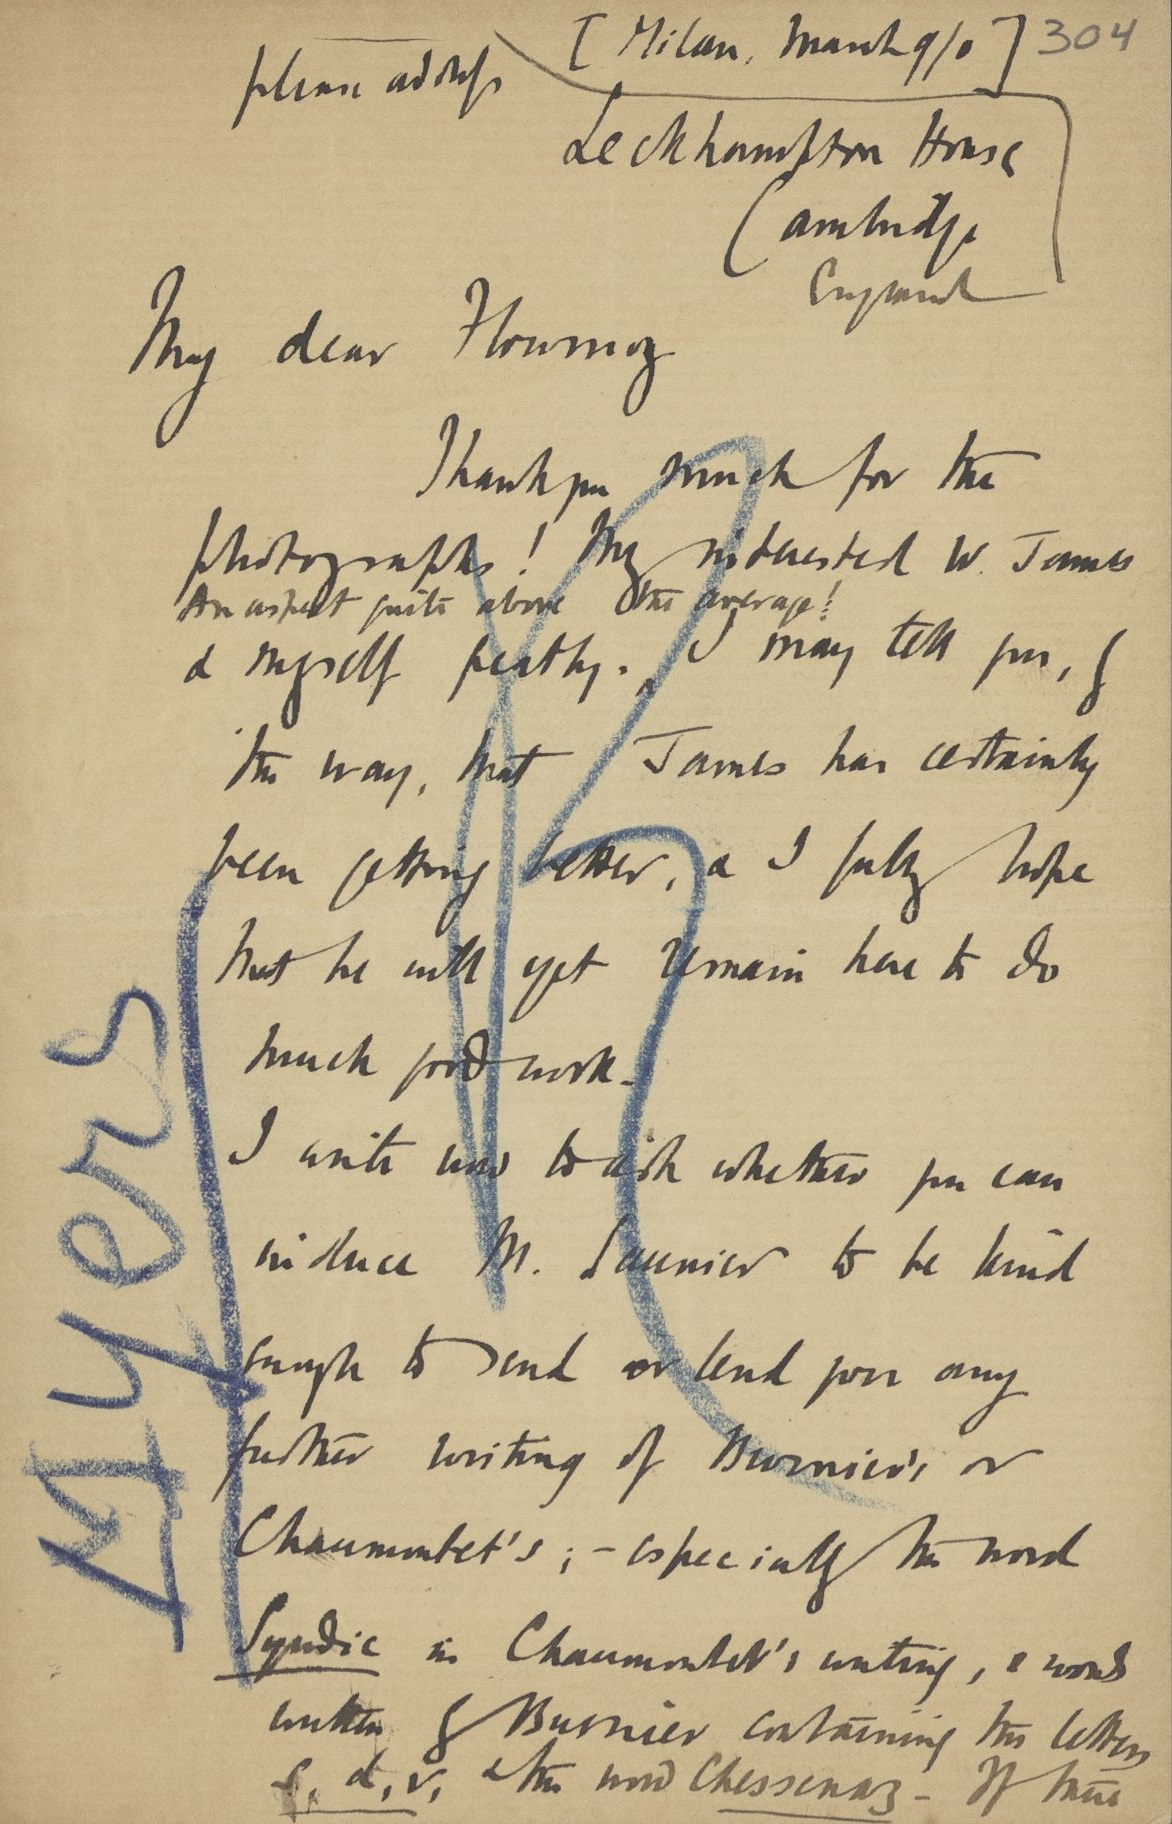 304
[Milan, March 9/0]
please address
Leckhampton House
Cambridge
England
My dear Flournoy
Thank you much for the
photographs! They interested W. James
An aspect quite above the average!
& myself greatly. I may tell you, by
the way, that James has certainly
been getting better, & I fully hope
that he will yet remain here to do
much good work.
I write now to ask whether you can
induce M. Saunier to be kind
enough to send or lend you any
further writing of Burnier's or
Chaumontet's ; - especially the word
Syndic in Chaumontet's writing, & words
written by Burnier containing the letters
d, r, & the word Chessenaz - If there
Myers